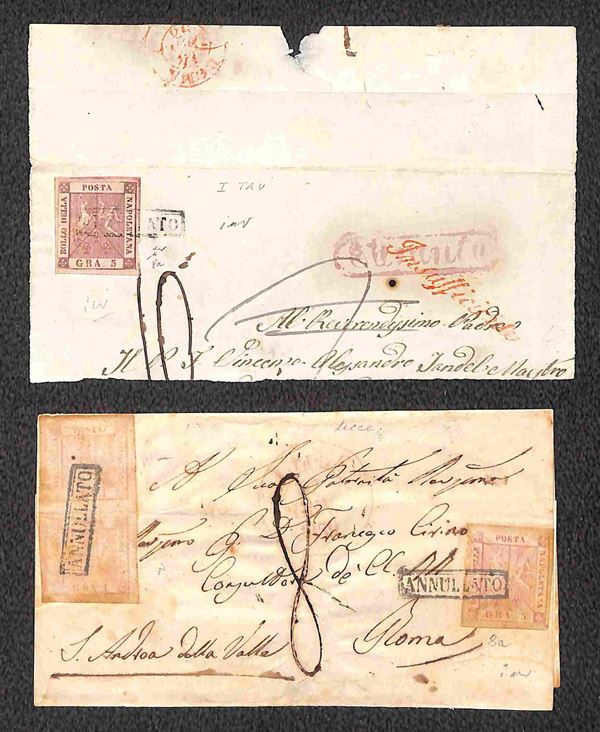 ROMA
POSTA
BOLLO DELLA
NAPOLETANA
GRA. 5
ANNULLATO
I TAV
inv
8a
inv
Insufficiente
Al Reverendissimo Padre
Il P. F. Vincenzo Alessandro Jandel Maestro
ucce.
ANNULLATO
A Sua Paternità
8
P. D. Francesco Cirino
Consultore de' CC. RR.
S. Andrea della Valle
Roma
POSTA
NAPOLETANA
GRA 5
ANNULLATO
8a
inv